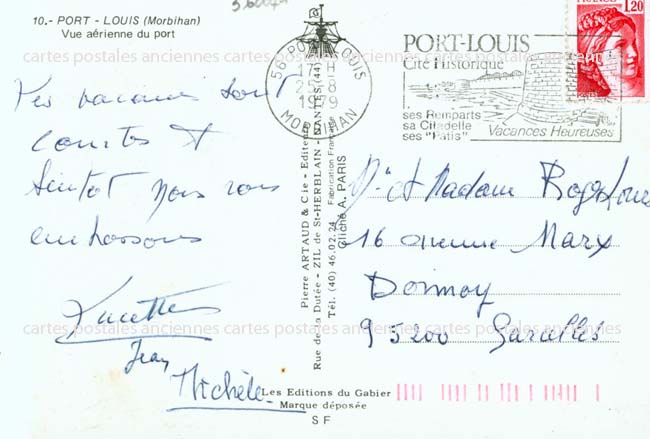 10.- PORT - LOUIS (Morbihan)
Vue aérienne du port
56 PORT LOUIS
17 H
1979
MORBIHAN
PORT-LOUIS
Cité Historique
ses Remparts
sa Citadelle
ses "Patis"
Vacances Heureuses
FRANCE
1,20
cartes postales anciennes cartes postales anciennes cartes postales anciennes
vacances sont
courtes et
bientot nous vous
embrassons
Lucette
Jean
Michèle
Pierre ARTAUD & Cie - Editeurs - NANTES (44)
Rue de la Dutée - ZIL de St-HERBLAIN
Tél. (40) 46.02.24 Fabrication Française
Cliché A. PARIS
Mr et Madame Roger
16 avenue Marx
Dormoy
95200 Sarcelles
cartes postales anciennes cartes postales anciennes cartes postales anciennes
Les Editions du Gabier
Marque déposée
SF